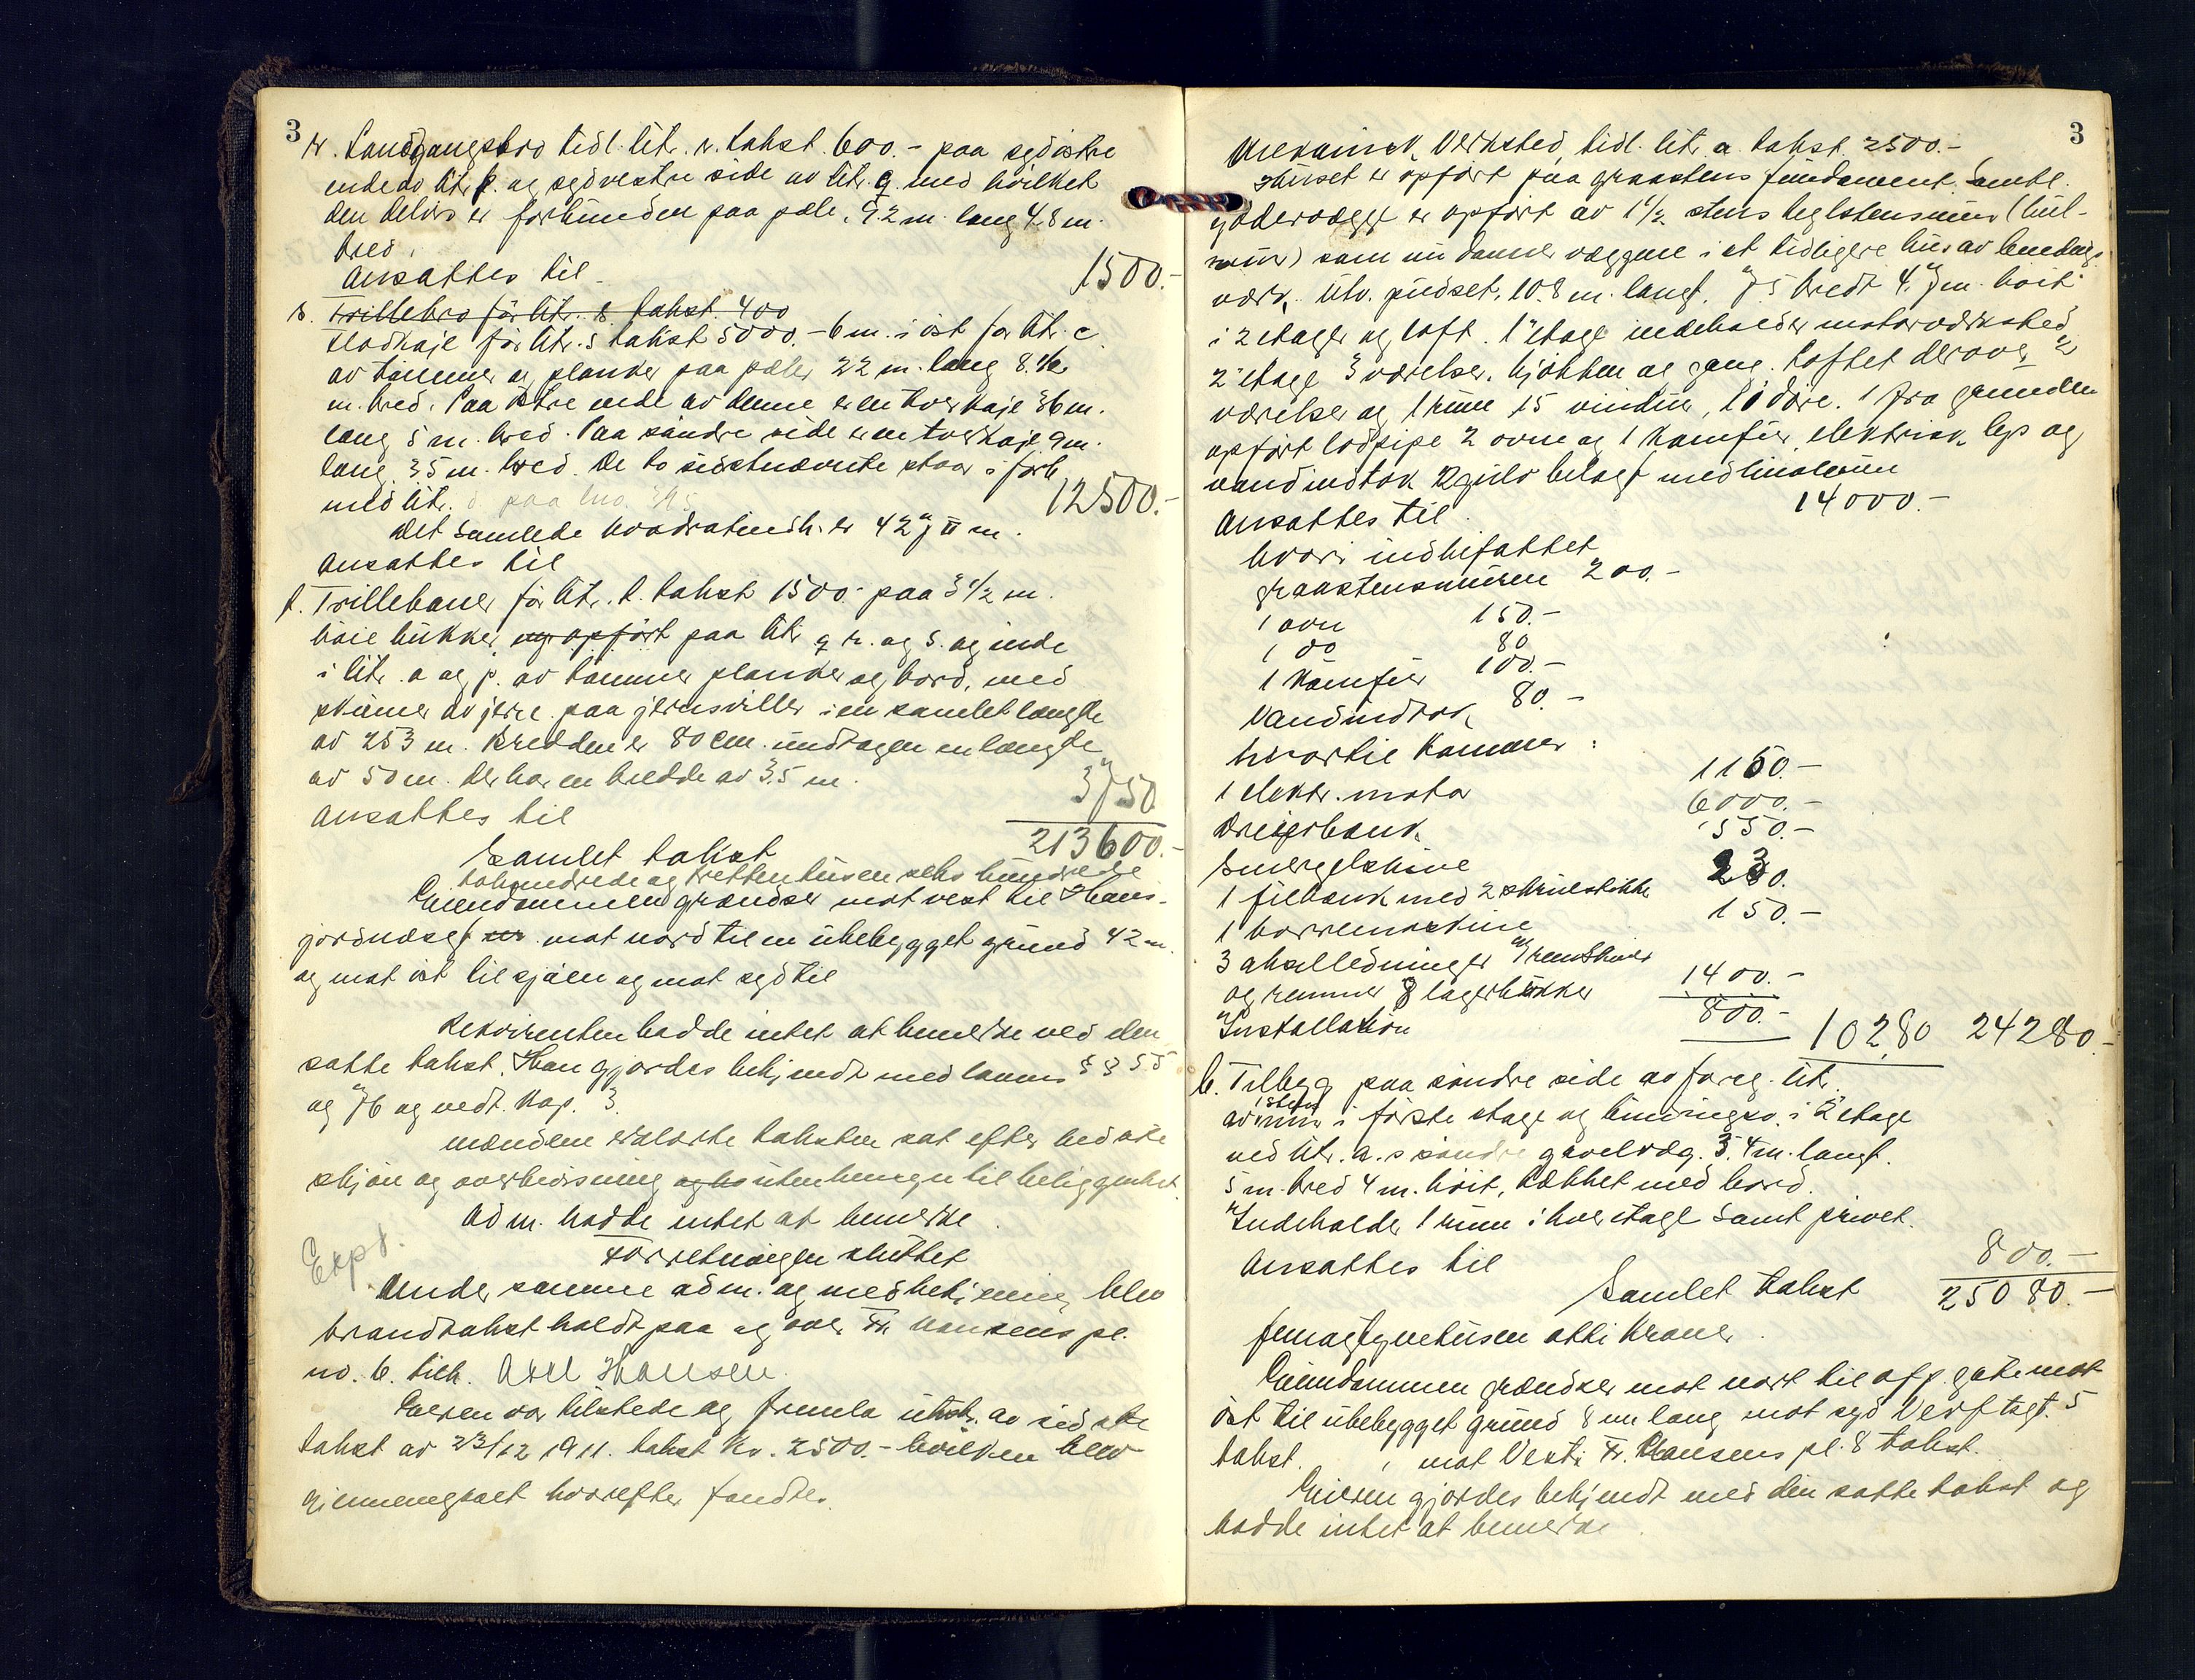 3
r. Landgangsbro tidl. litr. r. takst 600.- paa sydöstre
ende av litr. p. og sydvestre side av litr. q. med hvilket
den delvis er forbunden paa pæle. 9.2 m. lang 4.8 m.
bred.
Ansattes til 1500.-
s. Trillebro för litr. s. takst. 400
Flodkaje för litr. s takst 5000.- 6 m. i öst for litr. c.
av tömmer og planker paa pæler 22 m. lang 8.
m. bred. Paa östre ende av denne er en tverkaje 36 m.
lang 5 m. bred. Paa söndre side er en tverkaje 9 m.
lang 3.5 m. bred. De to sidstnævnte staar i forb.
med litr. d. paa 12500.-
Det samlede kvadratindh. er 427 m.
Ansattes til
t. Trillebaner för litr. t. takst 1500.- paa 3 1/2 m.
höie bukker, ny opfört paa litr. q r. og s. og inde
i litr. a og p. av tömmer planker og bord, med
skinner av jern paa jernsviller i en samlet længde
av 253 m. Bredden er 80 cm. undtagen en længde
av 50 m. der har en bredde av 3.5 m.
Ansattes til 3750
Samlet takst 213600.-
tohundrede og trettentusen seks hundrede
Eiendommen grændser mot vest til Hans-
gordnæset mot nord til en ubebygget grund 42 m.
og mot öst til sjöen og mot syd til
Rekvirenten hadde intet at bemerke ved den
satte takst. Han gjordes bekjendt med lovens §§ 55
og 76 og vedt. Kap. 3.
Mændene erklærte taksten sat efter bedste
skjön og overbevisning uten hensyn til beliggenhet.
Adm. hadde intet at bemerke.
Forretningen sluttet
Expd.
Under samme adm. og med betjening blev
brandtakst holdt paa og over Fr. Hansens pl.
no. 6. tilh. Axel Hansen.
Eieren var tilstede og fremla utskr. av sidste
takst av 23/12 1911. takst kr. 2500.- hvilken blev
gjennemgaaet hvorefter fandtes.
3
Mekanisk Verksted, tidl. litr. a. takst. 2500.-
Huset er opfört paa graastens fundament. Samtl.
ydervægge er opfört av 1 1/2 stens teglstensmur (hul-
mur) som nu danner væggene i et tidligere hus av bindings-
verk. Utv. pudset. 10.8 m. langt. 7.5 bredt 4.7 m. höit
i 2 etager og loft. 1' etage indeholder motorverksted
2' etage 3 værelser, kjökken og gang. Loftet derover 2
værelser og 1 rum 15 vinduer, 10 döre. 1 fra grunden
opfört lodpipe 2 ovne og 1 komfür, elektrisk lys og
vandindtak gulv belagt med linoleum
Ansattes til 14000.-
hvori indbefattet
graastensmuren 200.-
1 ovn 150.-
1 do 80
1 komfür 100.-
Vandindtak 80.-
hvortil kommer:
1 elektr. motor 1150.-
Dreierbænk 6000.-
Smergelskive 550.-
1 filbænk med 2 skruestikker 230.
1 borremaskine 150.-
3 akselledninger 7 remskiver
og remmer 8 lagerbukker 1400.-
Installation 800.- 10280 24280.-
b. Tilbygg paa söndre side av foreg. litr.
av 1 stens mur i förste etage og bindingsv. i 2' etage
ved litr. a.s söndre gavelvæg. 3.4 m. langt.
5 m. bred 4 m. höit, tækket med bord.
Indeholder 1 rum i hver etage samt privet.
Ansattes til 800.-
Samlet takst 25080.-
femogtyvetusen otti Kroner.
Eiendommen grændser mot nord til off. gate mot
öst til ubebygget grund 8 m lang mot syd Verftsgt. 5
takst. , mot Vest: Fr. Hansens pl. 8 takst.
Eieren gjordes bekjendt med den satte takst og
hadde intet at bemerke.